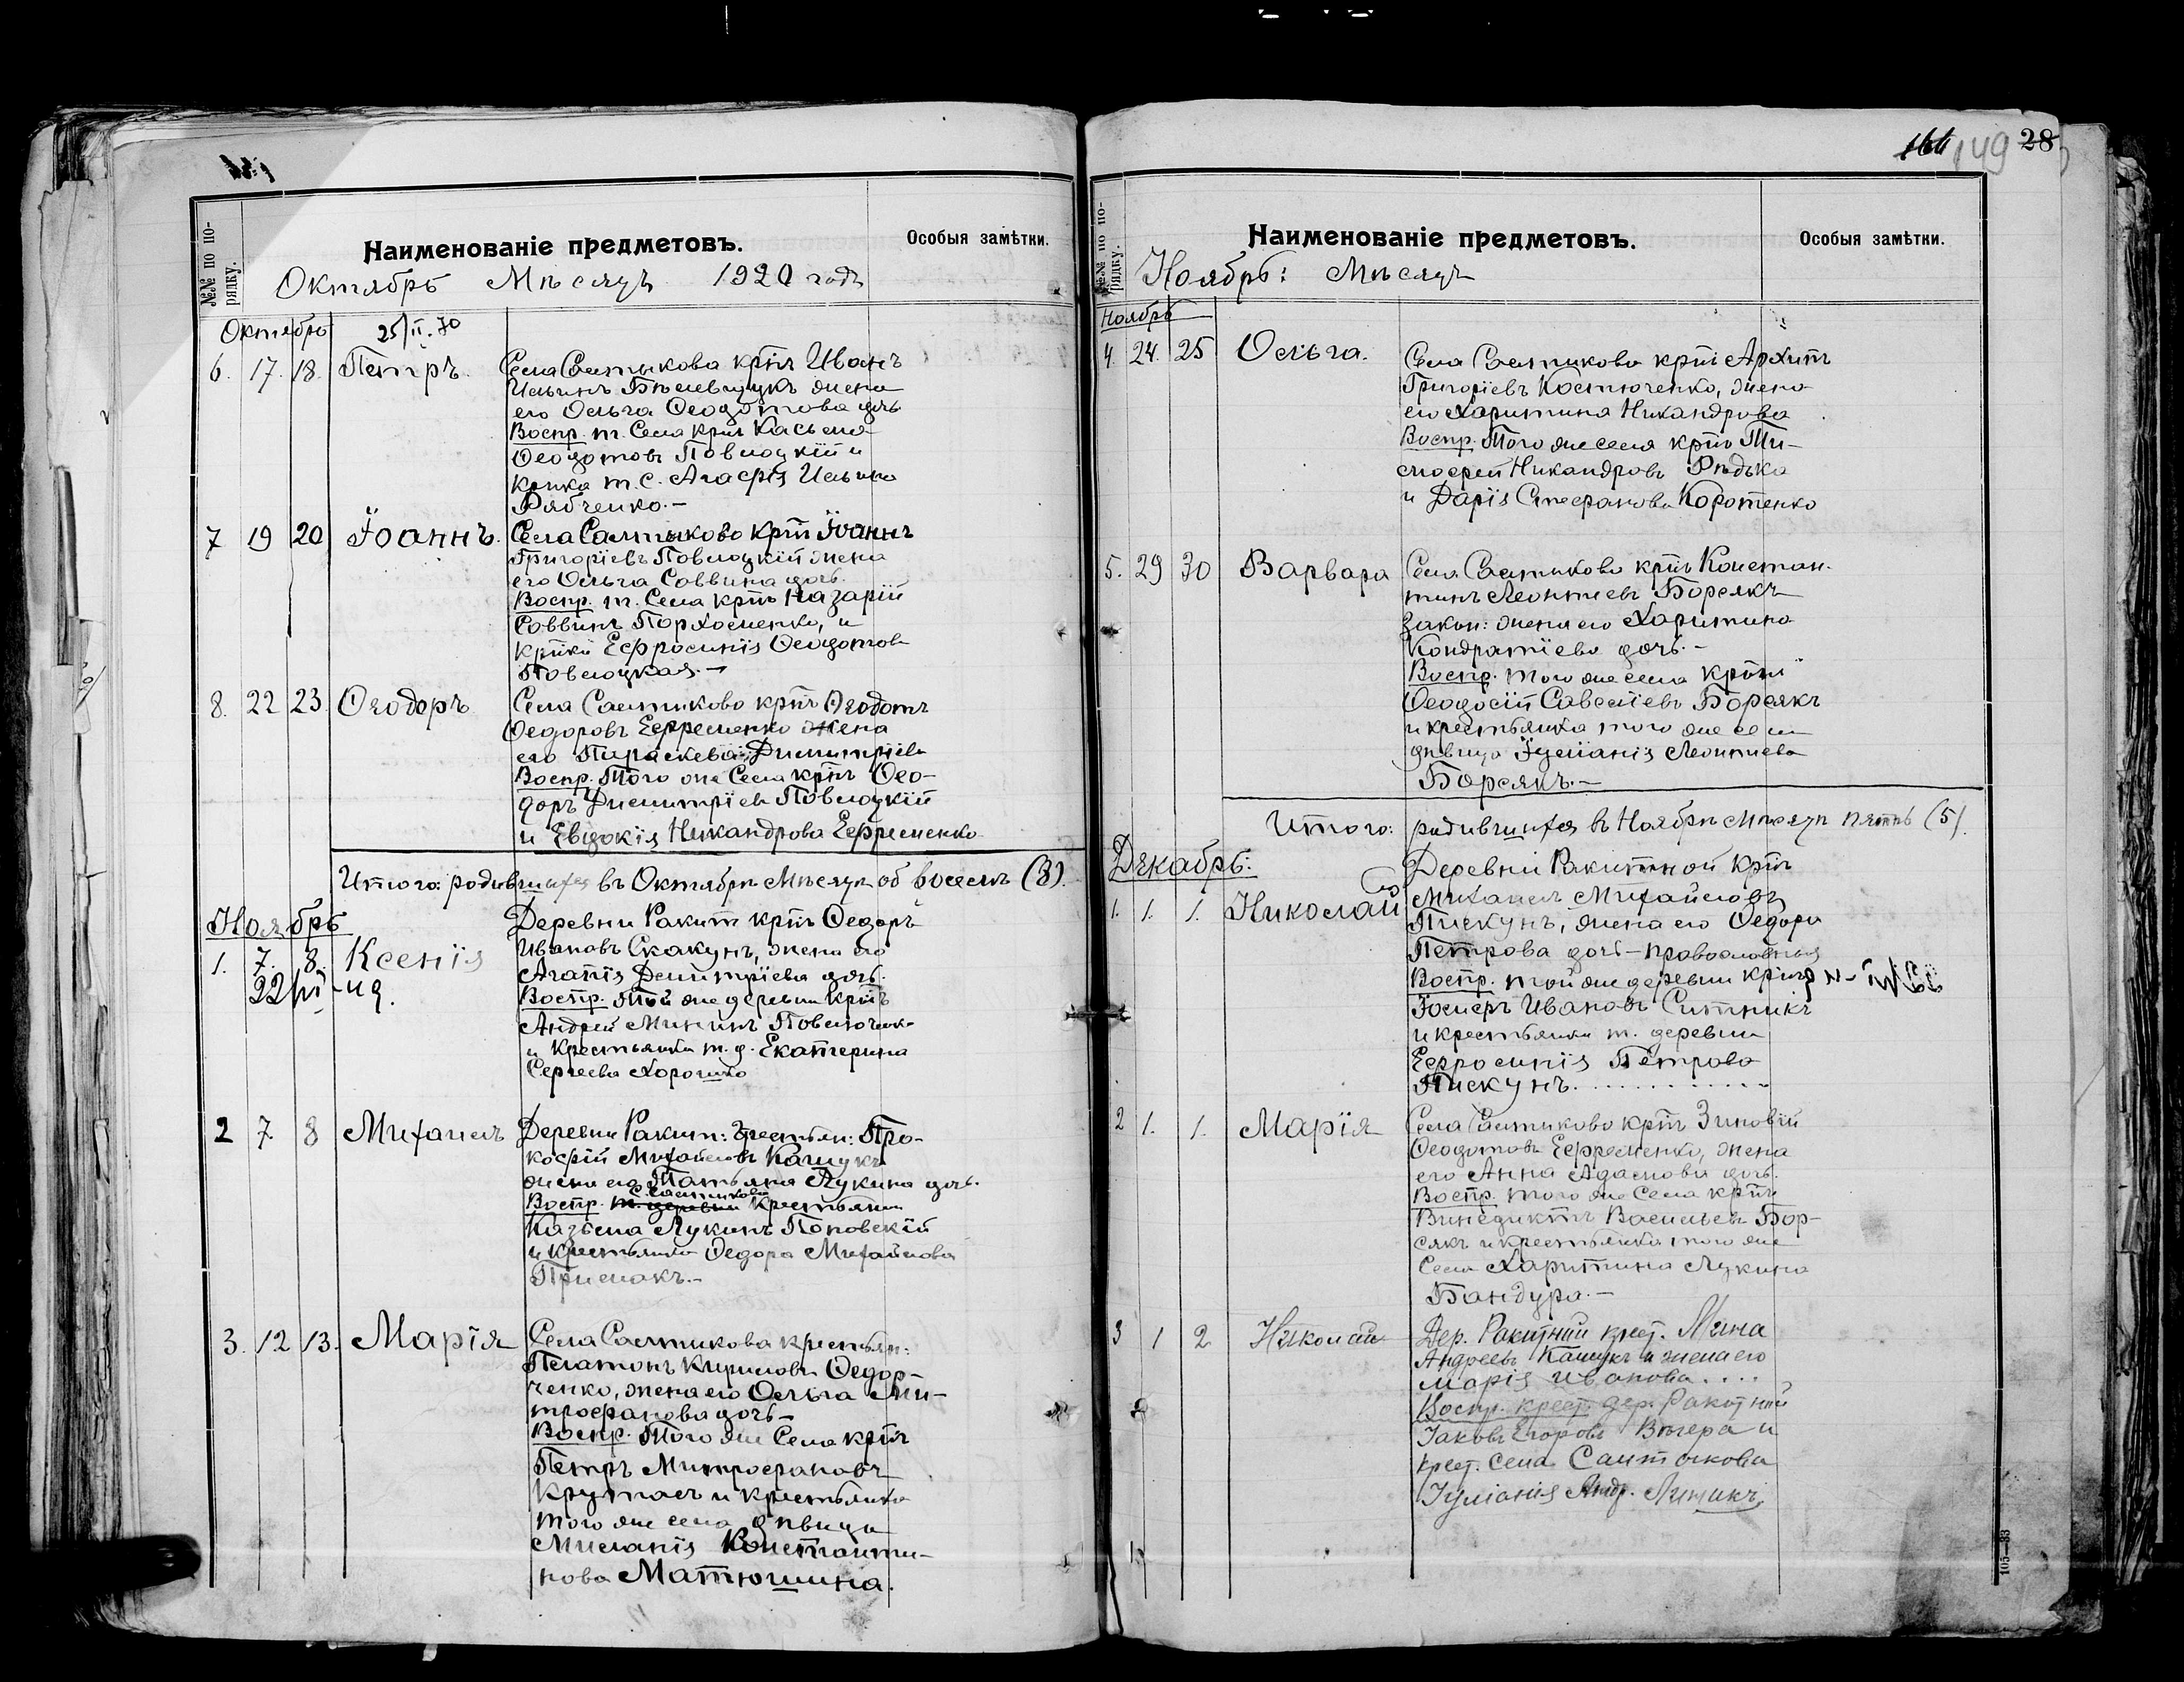 №№ по по-
рядку.
Наименованіе предметовъ.
Особыя замѣтки.
Октябрь Мѣсяцъ 1920 годъ
Октябрь
25/II.70
6. 17. 18. Петръ.
Села Салтыкова крѣн Иванъ
Ильинъ Бѣлевщукъ жена
его Ольга Ѳеодотова дочь
Воспр. т. Села крнъ Касьянъ
Ѳеодотовъ Повлоцкій и
крнка т. с. Агафія Ильина
Рябченко.—
7 19 20 Іоаннъ.
Села Салтыково крт Іоаннъ
Григоріевъ Повлоцкій жена
его Ольга Саввина дочь.
Воспр. т. Села крнъ Назарій
Саввинъ Пархоменко, и
крнка Евфросинія Ѳеодотов
Повлоцкая.—
8. 22 23 Ѳеодоръ
Села Салтиково крнъ Ѳеодотъ
Ѳедоровъ Ефременко жена
его Параскева Димитріева
Воспр. Того же Села крнъ Ѳео-
доръ Димитріев Повлоцкій
и Евдокія Никандрова Ефременко
Итого: родившихся въ Октябрѣ Мѣсяцѣ об восемь (8).
Ноябрь
1. 7. 8. Ксенія
22/VI-ид.
Деревни Ракит крнъ Ѳедоръ
Ивановъ Скакунъ, жена его
Агапія Димитріева дочь.
Воспр. Той же деревни крнъ
Андрей Мининъ Павлюченк
и крестьянка т. д. Екатерина
Сергеева Хорошко
2 7. 8 Михаилъ
Деревни Ракит: Крестьян: Про-
кофій Михайловъ Кащукъ
жена его Татьяна Лукина дочь.
С. Салтикова
Воспр. т. деревни крестьянин
Казьма Лукинъ Поповскій
и крестьянка Ѳедора Михайлова
Примакъ.—
3. 12 13. Марія
Села Салтикова крестьян:
Платонъ Кириловъ Ѳедор-
ченко, жена его Ольга Ми-
трофанова дочь—
Воспр. Того же Села крнъ
Петръ Митрофановъ
Крутась и крестьянка
того же села дѣвица
Миланія Константи-
нова Матюшина.
149 28
№№ по по-
рядку.
Наименованіе предметовъ.
Особыя замѣтки.
Ноябрь: Мѣсяцъ
Ноябрь
4. 24. 25 Ольга.
Села Салтиково крнъ Архипъ
Григоріевъ Костюченко, жена
его Харитина Никандрова
Воспр. Того же села крнъ Ти-
мофей Никандровъ Рѣдька
и Дарія Стефанова Коротенко
5. 29 30 Варвара
Села Салтиково крнъ Констан-
тинъ Леонтіевъ Борсякъ
закон: жена его Харитина
Кондратіева дочь.—
Воспр. того же села крнъ
Ѳеодосій Савеліевъ Борсякъ
и крестьянка того же села
дѣвица Іуліанія Леонтиева
Борсякъ.—
Итого: родившихся въ Ноябрѣ Мѣсяцѣ пять (5).
Декабрь:
1. 1. 1. Николай
Деревни Ракитной крнъ
Михаилъ Михайловъ
Пискунъ, жена его Ѳедора
Петрова дочь—православныя
Воспр. той же деревни крнъ
Іосифъ Ивановъ Ситникъ
и крестьянка т. деревни
Евфросинія Петрова
Пискунъ. . . . . . . . . . . .
2 1. 1. Марія
Села Салтиково крнъ Зиновій
Ѳеодотовъ Ефременко, жена
его Анна Адамова дочь.
Воспр. того же Села крнъ
Винедиктъ Васильевъ Бор-
сякъ и крестьянка того же
Села Харитина Лукина
Бандура.—
3 1 2 Николай
Дер. Ракитній крест. Мина
Андреевъ Кащукъ и жена его
Марія Иванова. . . .
Воспр. крест. дер. Ракитній
Іаковъ Егоровъ Вечера и
крест. села Салтыкова
Іуліанія Андр. Линикъ.
105—33